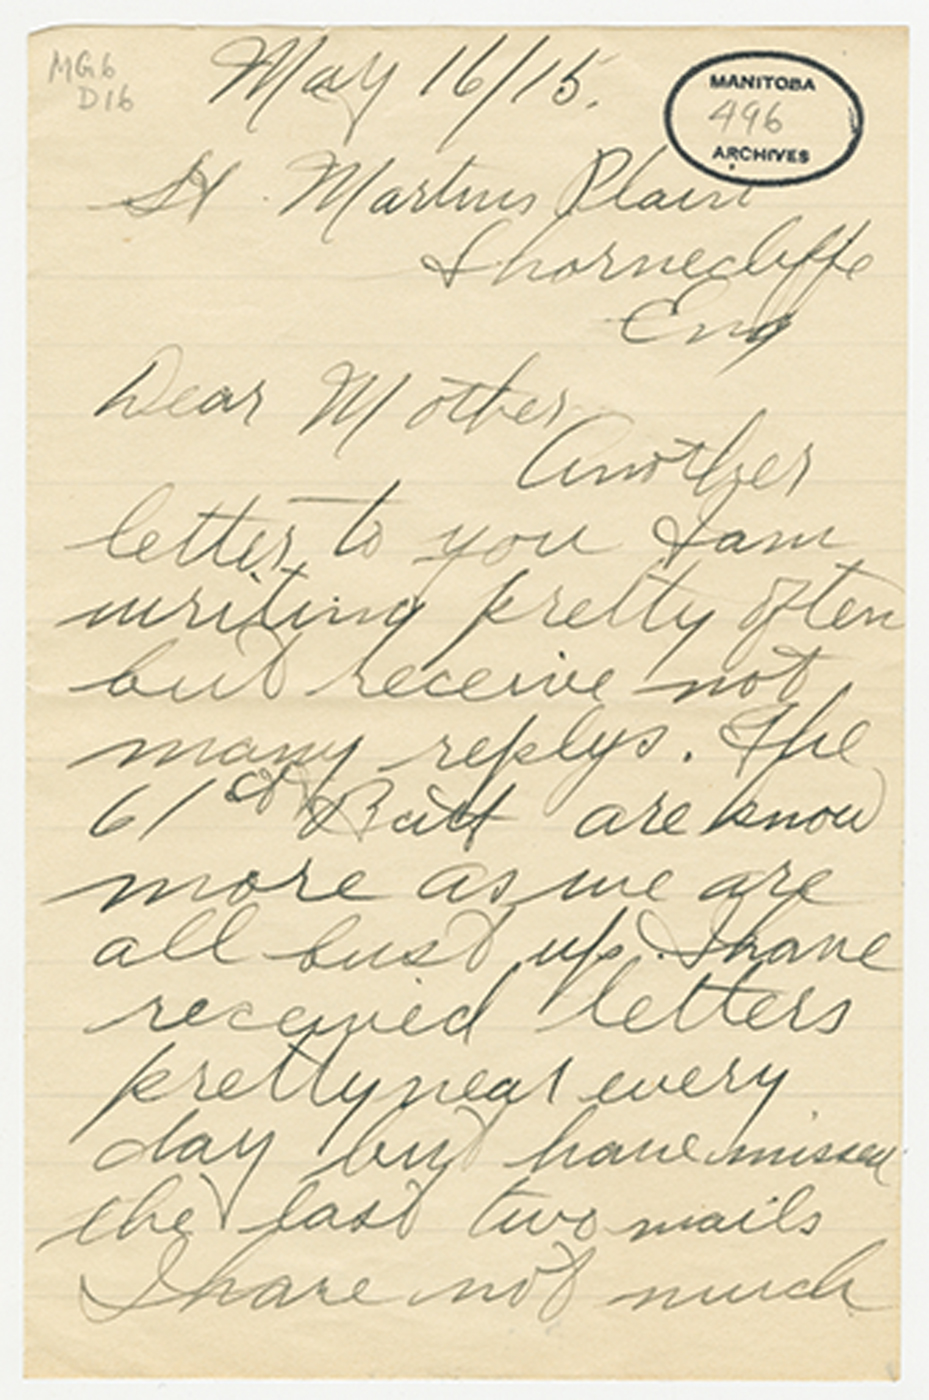 MG6
D16
May 16/15.
MANITOBA
496
ARCHIVES
St. Martins Plain
Shornecliffe
Eng
Dear Mother
Another
letter to you I am
writing pretty often
but receive not
many replys. The
61st Batt are know
more as we are
all bust up. I have
received letters
pretty near every
day but have missed
the last two mails
I have not much